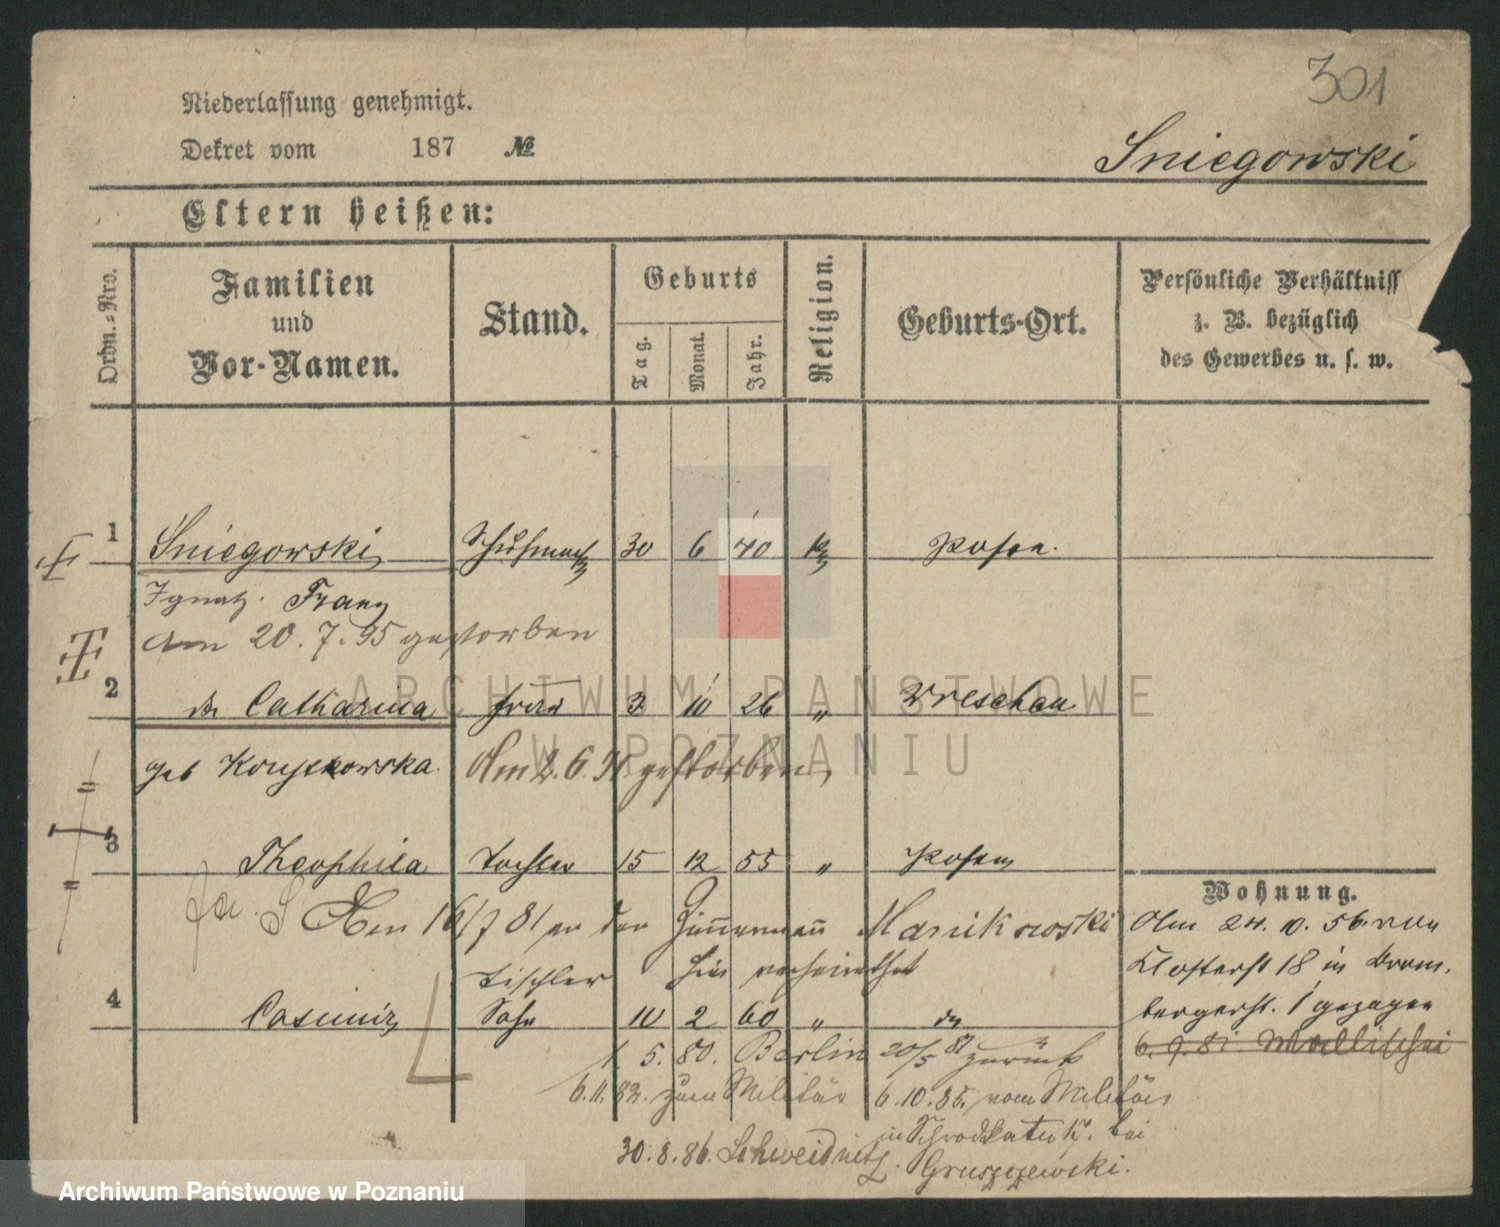 301
Niederlassung genehmigt.
Dekret vom 187 №
Sniegowski
Eltern heißen:
Ordn.-Nro.
Familien und Vor-Namen.
Stand.
Geburts
Tag.
Monat.
Jahr.
Religion.
Geburts-Ort.
Persönliche Verhältniss
z. B. bezüglich
des Gewerbes u. s. w.
1 Sniegowski Schuhmach 30 6 40 Posen.
Ignatz. Franz
Am 20.7.95 gestorben
2 Catharina Frau 3 10 26 " Wreschen
geb
Am 2.6. gestorben
3 Theophila Tochter 15 12 55 " Posen
Am 16/7 81 an den Zimmermann
Tischler hier verheirathet
4 Casimir Sohn 10 2 60 " do
1. 5. 80. Berlin 20/5 81 zurück
6.11.82. zum Militär 6.10.85. vom Militär
in bei
30.8.86. Schweidnitz Gruszczewski.
Wohnung.
Am 24. 56. von
Klosterst 18 in Brom.
bergerst. 1 gezogen
6. 9. 81
ARCHIWUM PAŃSTWOWE
W POZNANIU
Archiwum Państwowe w Poznaniu